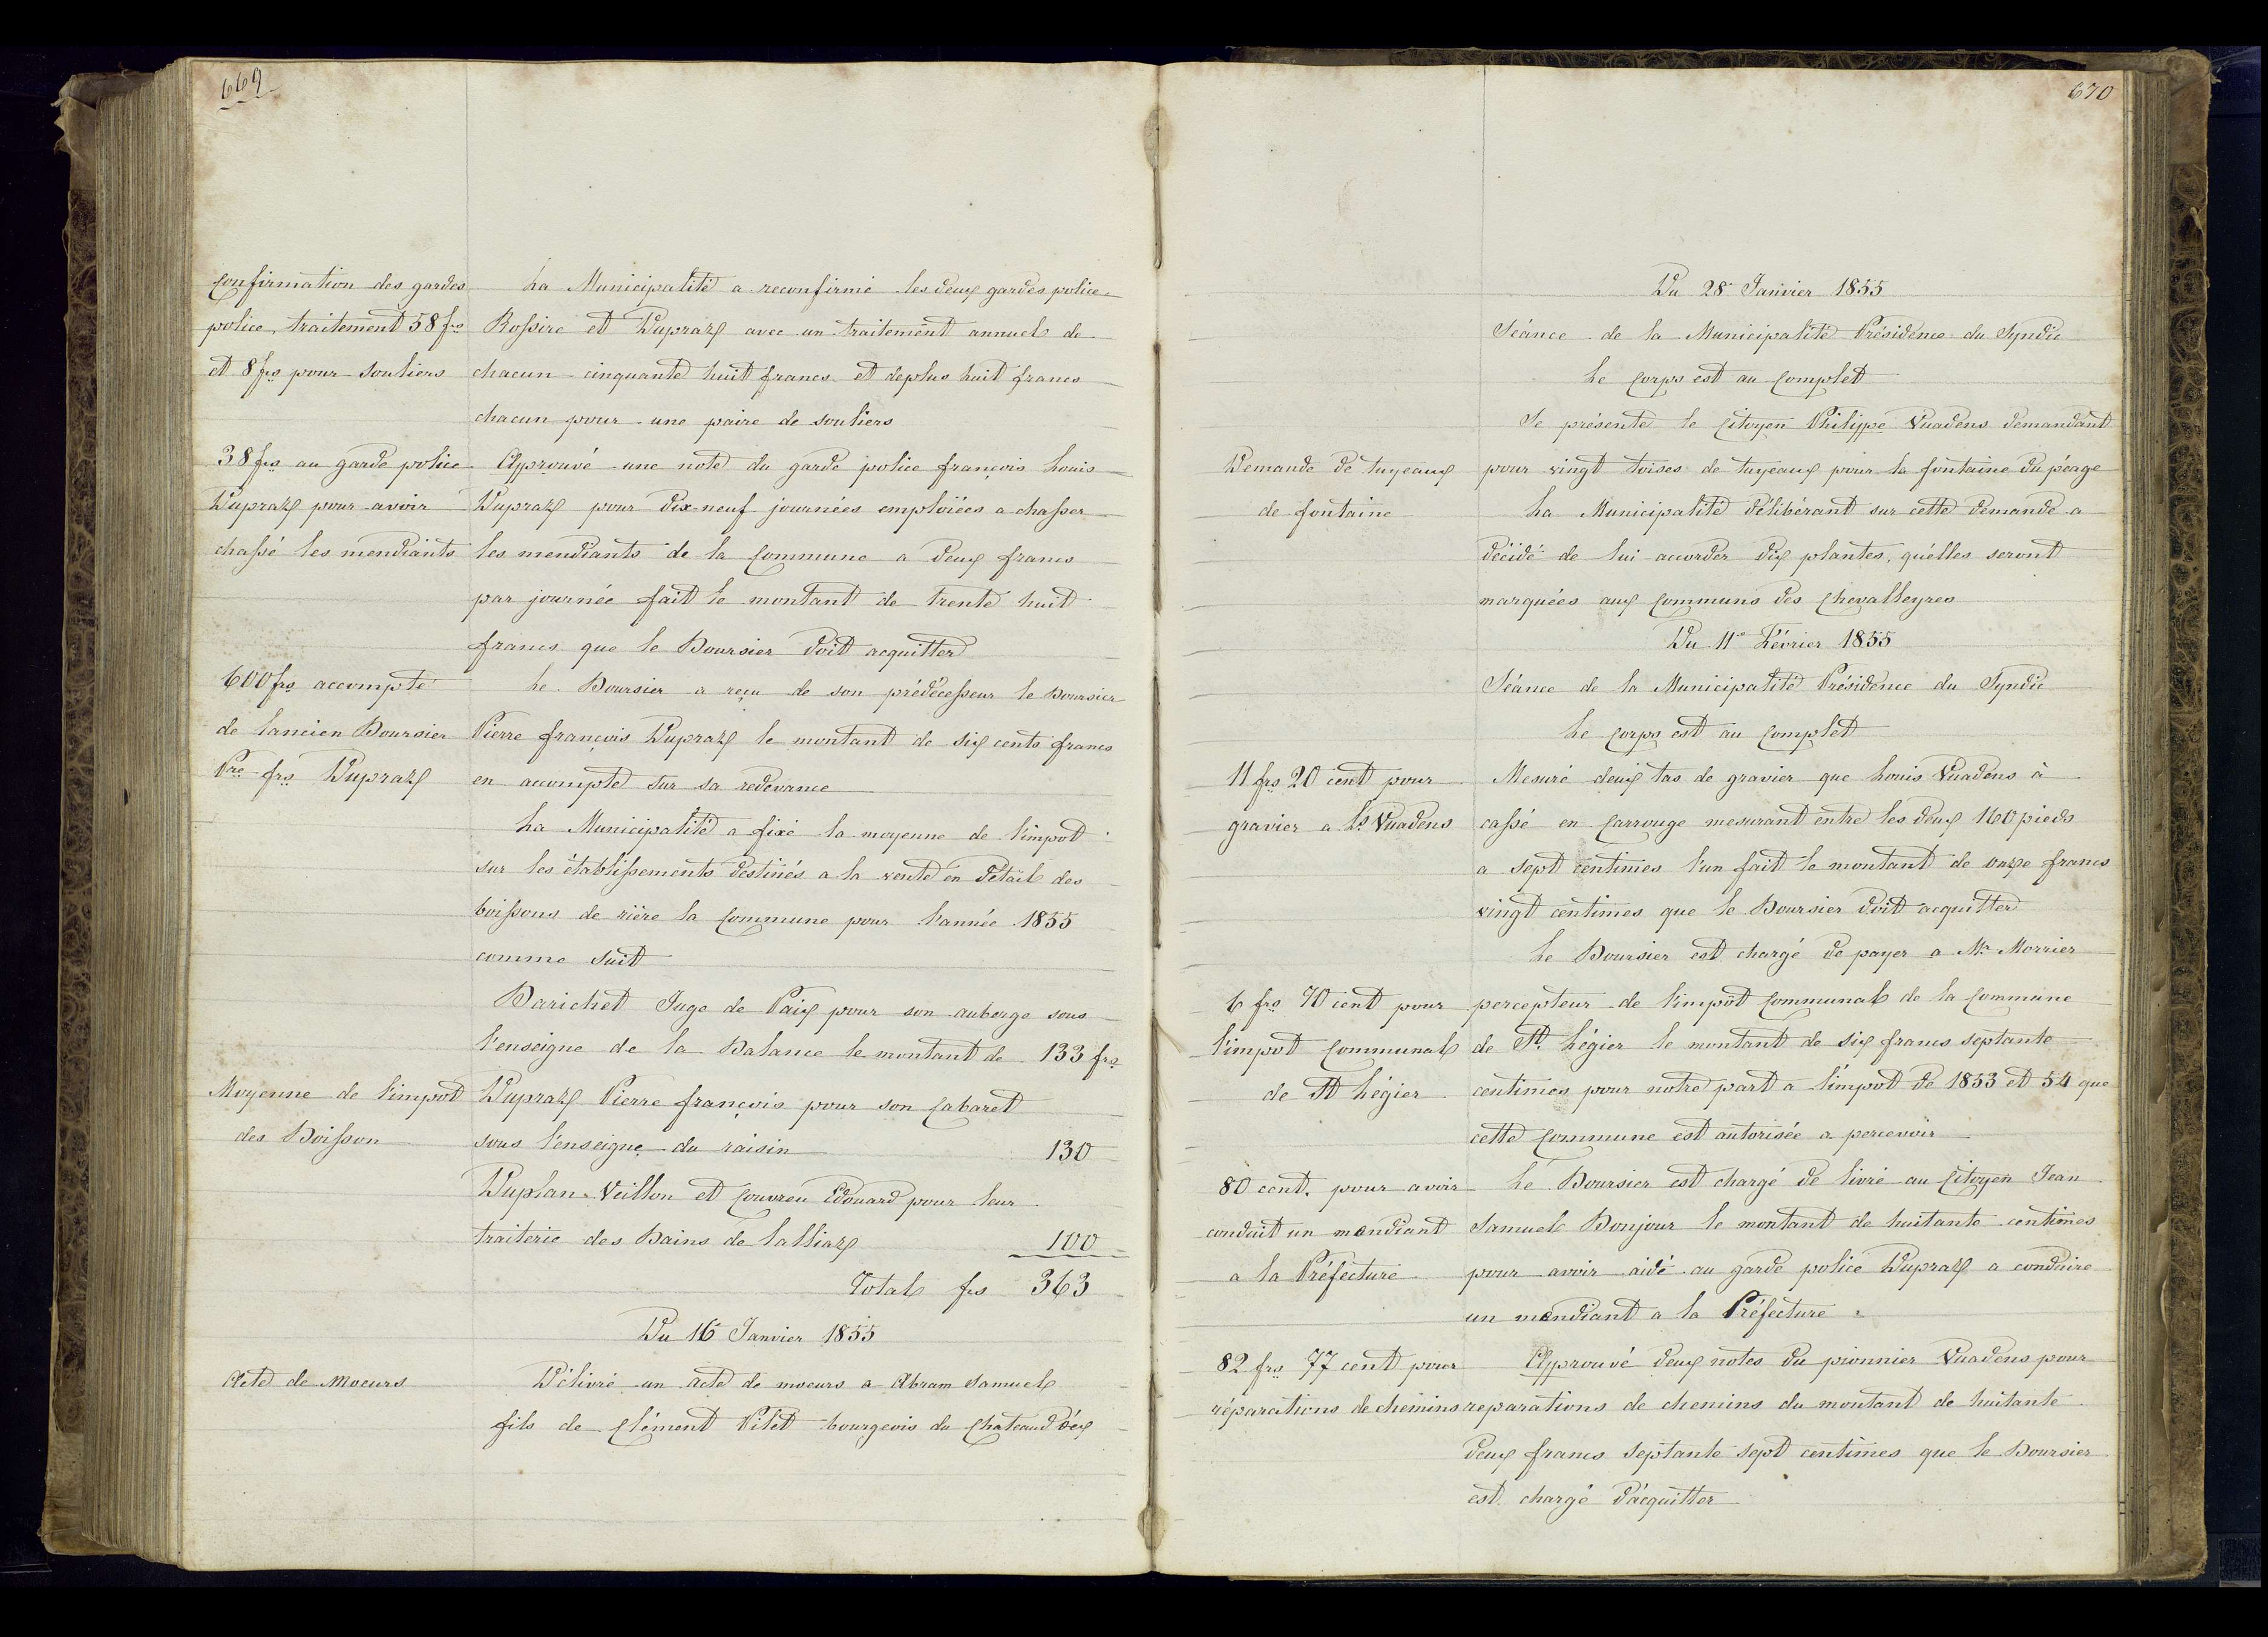 669
Confirmation des gardes
police, traitement 58 frs
et 8 frs pour souliers
La Municipalité a reconfirmé les deux gardes police
Rossire et Dupraz avec un traitement annuel de
chacun cinquante huit francs et deplus huit francs
chacun pour une paire de souliers
38 frs au garde police
Dupraz pour avoir
chassé les mendiants
Approuvé une note du garde police françois Louis
Dupraz pour dix-neuf journées emploiées a chasser
les mendiants de la Commune a deux francs
par journée fait le montant de trente huit
francs que le Boursier doit acquitter
600 frs accompte
de lancien Boursier
Pre frs Dupraz
Le Boursier a reçu de son prédécesseur le Boursier
Pierre françois Dupraz le montant de six cents francs
en accompte sur sa redevance
La Municipalité a fixé la moyenne de l'impot
sur les établissements destinés a la vente en détail des
boissons de rière la Commune pour l'année 1855
comme suit
Barichet Juge de Paix pour son auberge sous
l'enseigne de la Balance le montant de 133 frs
Moyenne de l'impot
des Boisson
Dupraz Pierre françois pour son Cabaret
sous l'enseigne du raisin 130
Duplan-Veillon et Couvreu Edouard pour leur
traiterie des Bains de Lalliaz 100
Total frs 363
Du 16e Janvier 1855
Acte de Moeurs
Délivré un acte de moeurs a Abram Samuel
fils de Clément Pilet bourgeois du Chateaud'éx
670
Du 28e Janvier 1855
Séance de la Municipalité Présidence du Syndic
Le Corps est au Complet
Se présente le Citoyen Philippe Vuadens demandant
Demande de tuyeaux
de fontaine
pour vingt toises de tuyeaux pour la fontaine du péage
La Municipalité délibérant sur cette demande a
décidé de lui accorder dix plantes, quélles seront
marquées aux Communs des Chevalleyres
Du 11e Février 1855
Séance de la Municipalité Présidence du Syndic
Le Corps est au Complet
11 frs 20 cent pour
gravier a Ls Vuadens
Mesuré deux tas de gravier que Louis Vuadens à
cassé en Carrouge mesurant entre les deux 160 pieds
a sept centimes l'un fait le montant de onze francs
vingt centimes que le Boursier doit acquitter
Le Boursier est chargé de payer a Mr Morrier
6 frs 70 cent pour
l'impot Communal
de St Légier
percepteur de l'impôt Communal de la Commune
de St Légier le montant de six francs septante
centimes pour notre part a l'impot de 1853 et 54 que
cette Commune est autorisée a percevoir
80 cent. pour avoir
conduit un mendiant
a la Préfecture
Le Boursier est chargé de livré au Citoyen Jean
Samuel Bonjour le montant de huitante centimes
pour avoir aidé au garde police Dupraz a conduire
un mendiant a la Préfecture
82 frs 77 cent pour
réparations de chemins
Approuvé deux notes du pionnier Vuadens pour
reparations de chemins du montant de huitante
deux francs septante sept centimes que le Boursier
est chargé d'acquitter